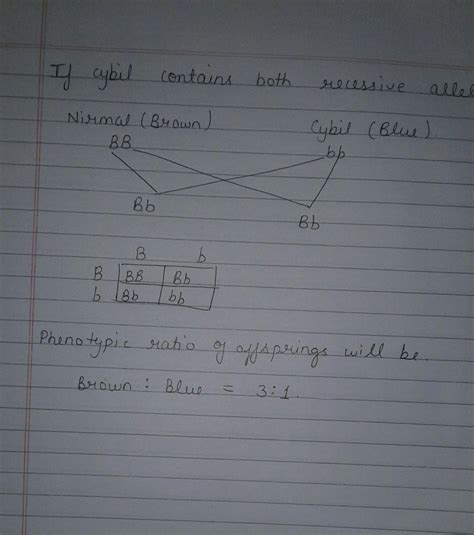 If cybil contains both recessive allel
Nirmal (Brown) Cybil (Blue)
BB bb
Bb Bb
B b
B BB Bb
b Bb bb
Phenotypic ratio of offsprings will be.
Brown : Blue = 3:1.